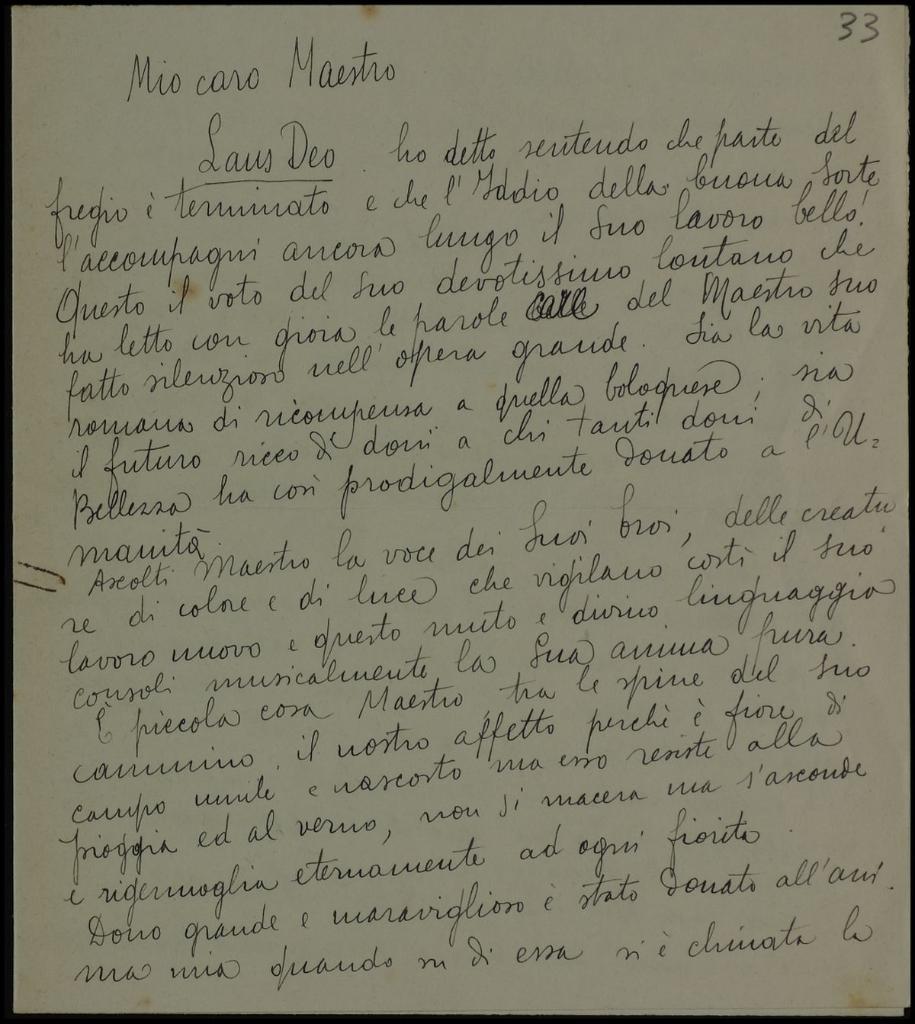 33
Mio caro Maestro
Laus Deo ho detto sentendo che parte del
fregio è terminato e che l'Iddio della buona sorte
l'accompagni ancora lungo il Suo lavoro bello.
Questo il voto del Suo devotissimo lontano che
ha letto con gioia le parole del Maestro suo
fatto silenzioso nell'opera grande. Sia la vita
romana di ricompensa a quella bolognese; sia
il futuro ricco di doni a chi tanti doni di
Bellezza ha così prodigalmente donato a l'U=
manità.
Ascolti Maestro la voce dei Suoi Eroi, delle creatu
re di colore e di luce che vigilano costì il Suo
lavoro nuovo e questo muto e divino linguaggio
consoli musicalmente la Sua anima pura.
È piccola cosa Maestro, tra le spine del Suo
cammino, il nostro affetto perchè è fiore di
campo umile e nascosto ma esso resiste alla
pioggia ed al verno, non si macera ma s'asconde
e rigermoglia eternamente ad ogni fiorita.
Dono grande e maraviglioso è stato donato all'ani
ma mia quando su di essa si è chinata la